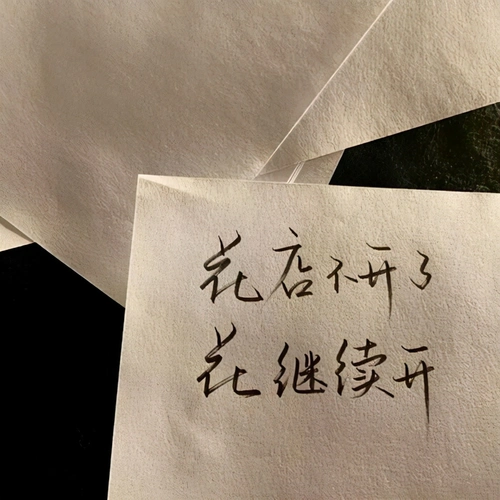 花店不开了
花继续开